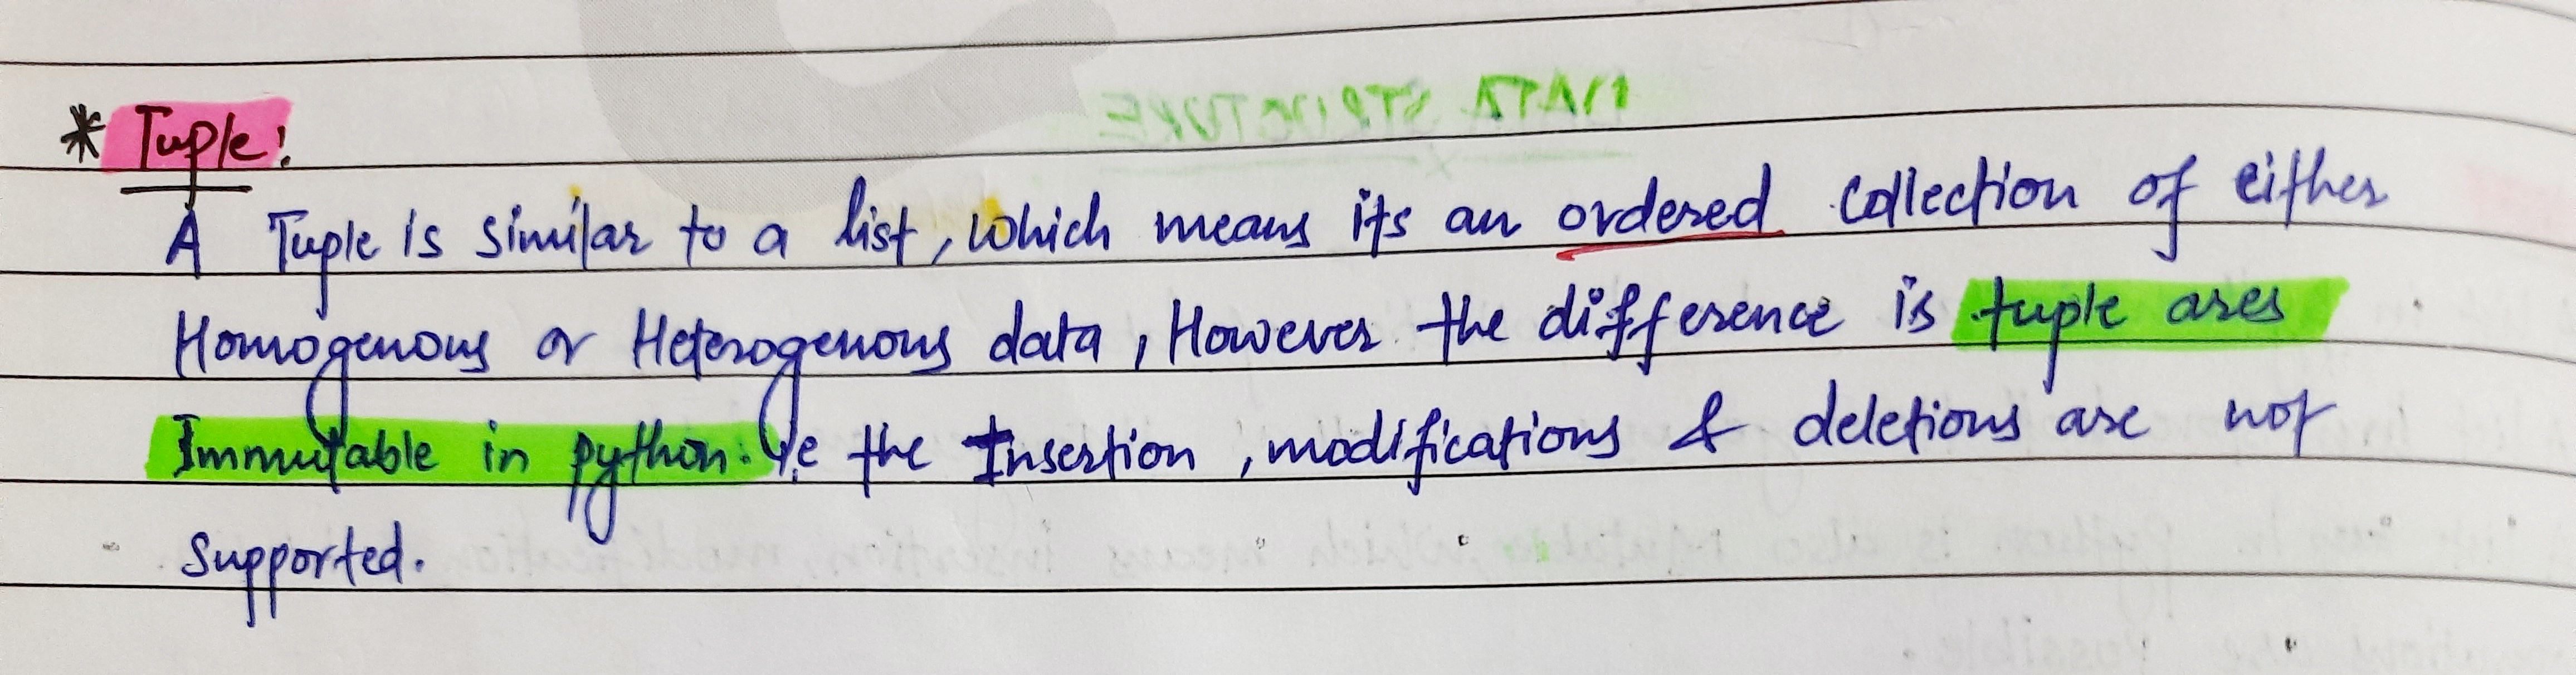 * Tuple:
A Tuple is similar to a list, which means its an ordered collection of either
Homogenous or Heterogenous data, However the difference is tuple ares
Immutable in python: i.e the Insertion, modifications & deletions are not
supported.
DATA STRUCTURE